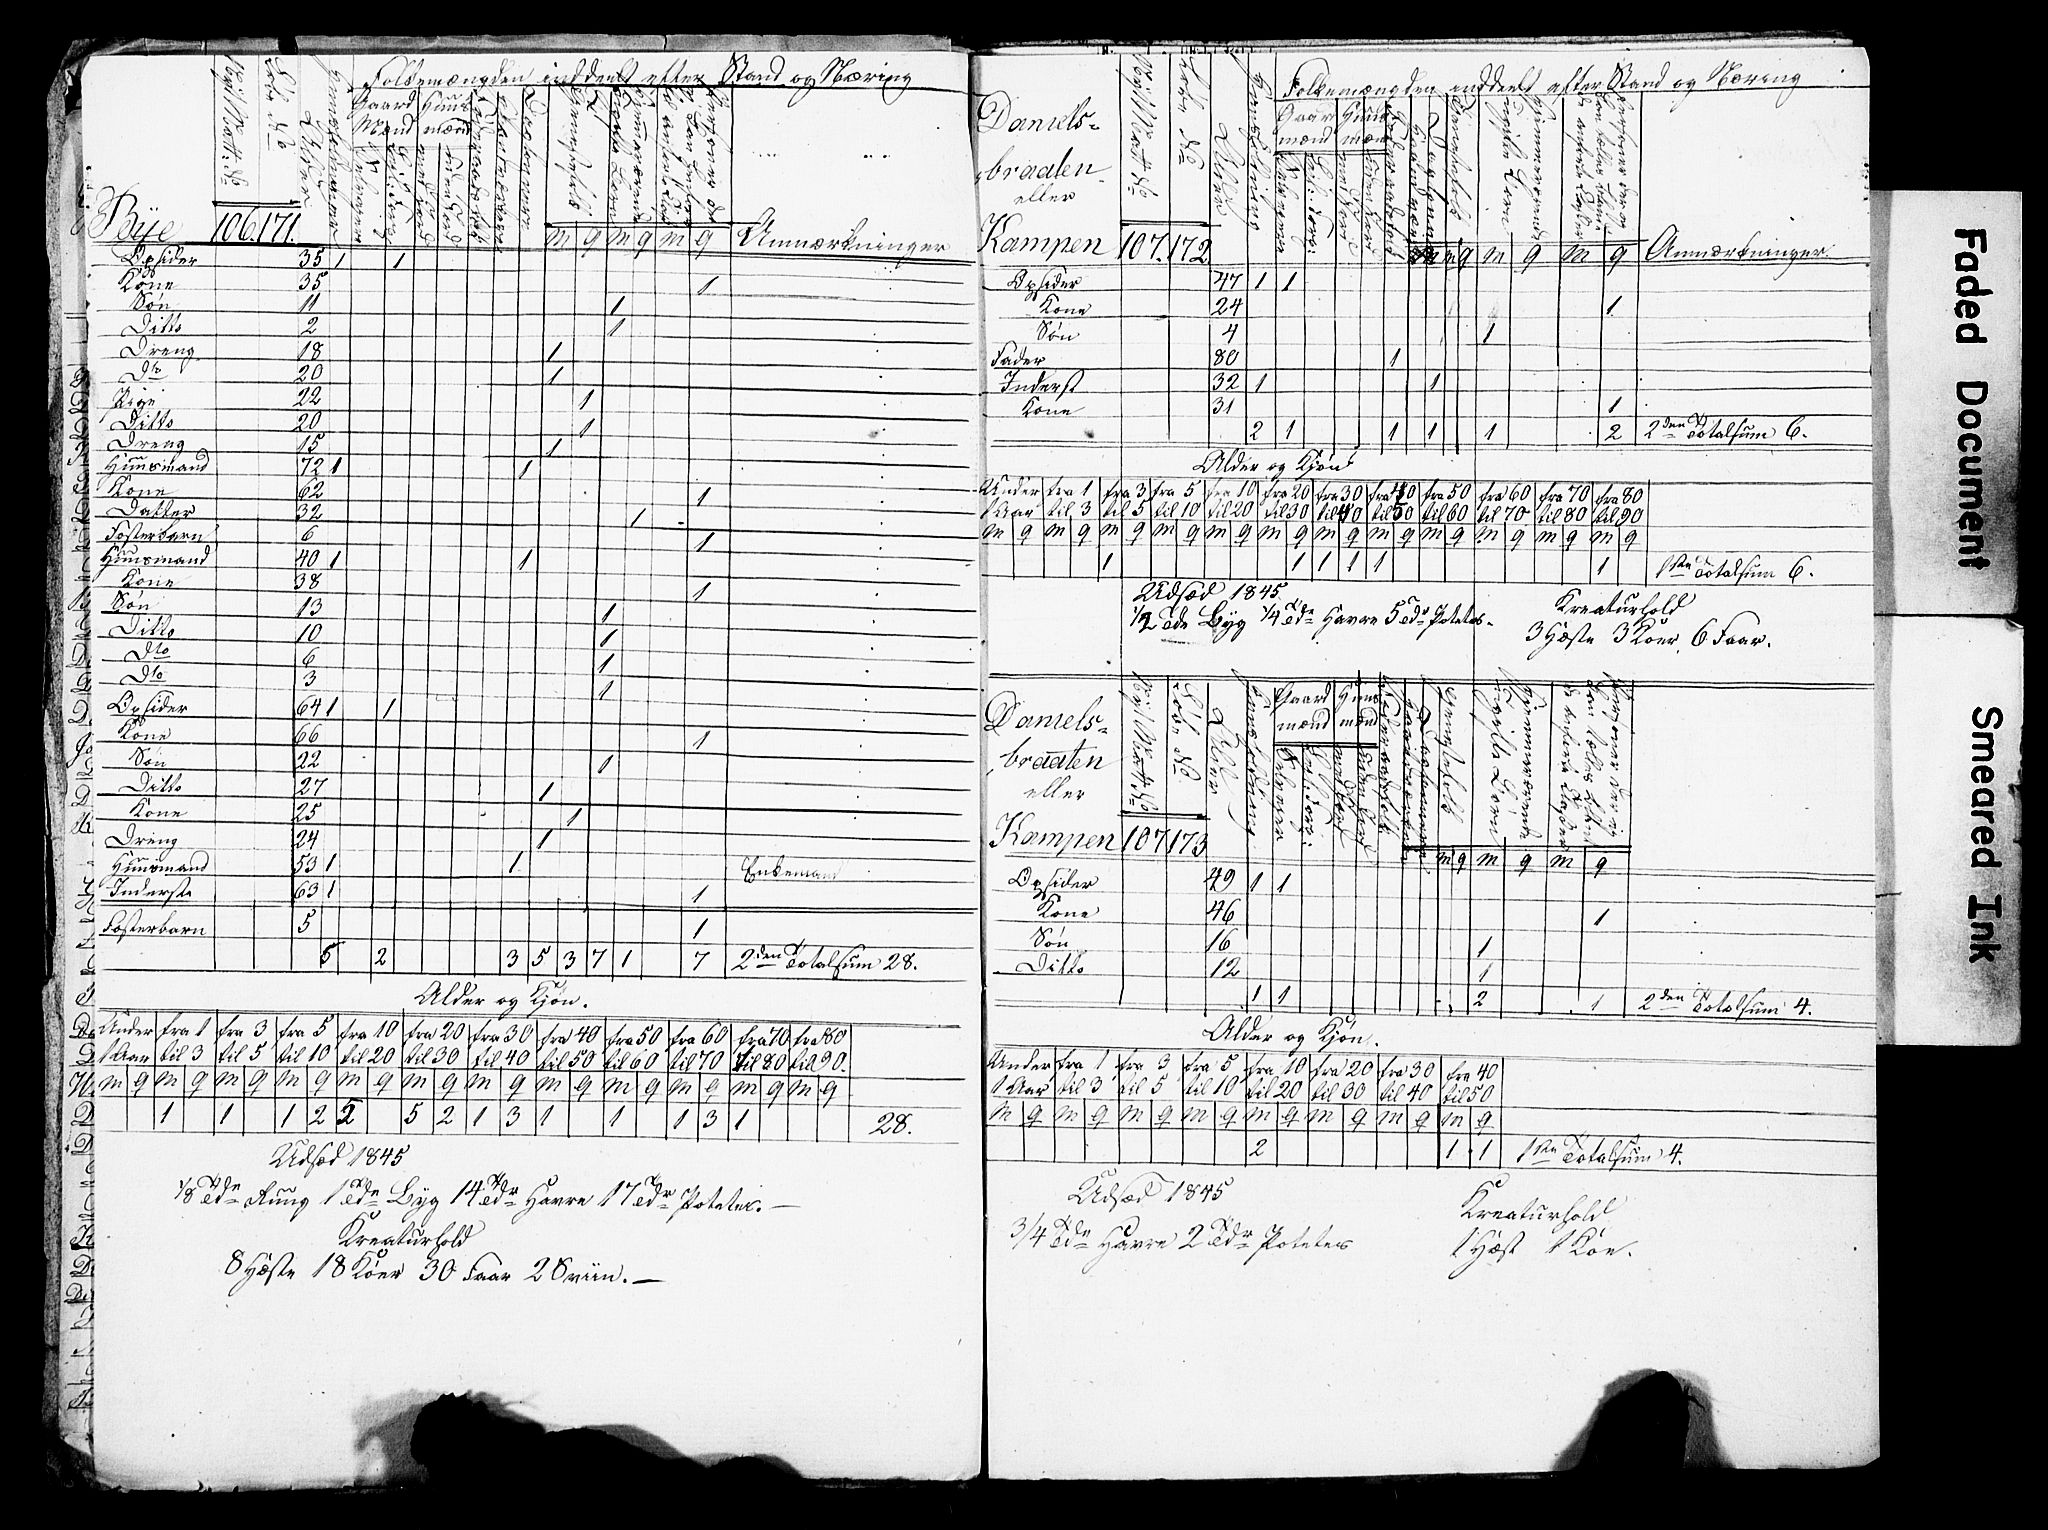 Folkemængden inddeelt efter Stand og Næring
Gaard Mænd
Huus mænd
Bÿe 106. 171. m q m q m q Anmærkninger
Opsider 35 1 1
Kone 35 1
Søn 11 1
Ditto 2 1
Dreng 18 1
Dto 20 1
Pige 22 1
Ditto 20 1
Dreng 15 1
Huusmand 72 1 1
Kone 62 1
Datter 32 1
Fosterbarn 6 1
Huusmand 40 1 1
Kone 38 1
Søn 13 1
Ditto 10 1
Dto 6 1
Dto 3 1
Opsider 64 1 1
Kone 66 1
Søn 22 1
Ditto 27 1
Kone 25 1
Dreng 24 1
Huusmand 53 1 1 Enkemand
Inderste 63 1 1
Fosterbarn 5 1
5 2 3 5 3 7 1 7 2den Totalsum 28.
Alder og Kjøn.
Under fra 1 fra 3 fra 5 fra 10 fra 20 fra 30 fra 40 fra 50 fra 60 fra 70 fra 80
1 Aar til 3 til 5 til 10 til 20 til 30 til 40 til 50 til 60 til 70 til 80 til 90.
m q m q m q m q m q m q m q m q m q m q m q m q
1 1 1 2 5 5 2 1 3 1 1 1 3 1 28.
Udsæd 1845
1/8 Tde Ruug 1 Tde Byg 14 Tdr Havre 17 Tdr Poteter.
Kreaturhold
8 Hæste 18 Köer 30 Faar 2 Sviin.
Folkemængden inddeelt efter Stand og Næring
Daniels-
braaten
eller
Kampen 107. 172 m q m q m q Anmærkninger.
Opsider 47 1 1
Kone 24 1
Søn 4 1
Fader 80 1
Inderst 32 1 1
Kone 31 1
2 1 1 1 1 2 2den Totalsum 6.
Alder og Kjøn
Under fra 1 fra 3 fra 5 fra 10 fra 20 fra 30 fra 40 fra 50 fra 60 fra 70 fra 80
1 Aar til 3 til 5 til 10 til 20 til 30 til 40 til 50 til 60 til 70 til 80 til 90
m q m q m q m q m q m q m q m q m q m q m q m q
1 1 1 1 1 1 1ste Totalsum 6.
Udsæd 1845
1/2 Tde Byg 1/4 Tde Havre 5 Tdr Poteter.
Kreaturhold
3 Hæste 3 Koer 6 Faar.
Daniels-
braaten
eller
Kampen 107 173 m q m q m q
Gaard mænd
Huus mænd
Opsider 49 1 1
Kone 46 1
Søn 16 1
Ditto 12 1
1 1 2 1 2den Totalsum 4.
Alder og Kjøn.
Under fra 1 fra 3 fra 5 fra 10 fra 20 fra 30 fra 40
1 Aar til 3 til 5 til 10 til 20 til 30 til 40 til 50
m q m q m q m q m q m q m q m q
2 1 1 1ste Totalsum 4.
Udsæd 1845
3/4 Tde Havre 2 Tdr Poteter
Kreaturhold
1 Hæst 1 Köe.
Faded Document
Smeared Ink